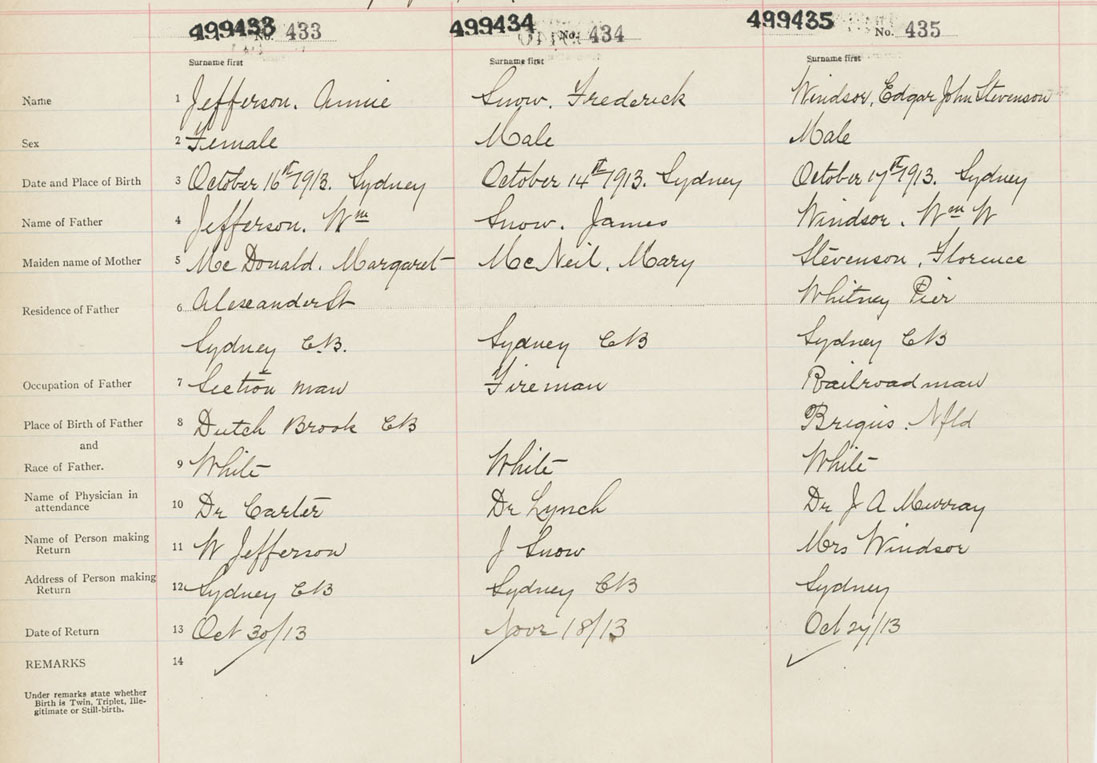 499433 No. 433 499434 No. 434 499435 No. 435
Surname first Surname first Surname first
Name 1 Jefferson. Annie Snow. Frederick Windsor, Edgar John Stevenson
Sex 2 Female Male Male
Date and Place of Birth 3 October 16th 1913. Sydney October 14th 1913. Sydney October 17th 1913. Sydney
Name of Father 4 Jefferson. Wm Snow. James Windsor. Wm W
Maiden name of Mother 5 Mc Donald. Margaret McNeil. Mary Stevenson, Florence
Residence of Father 6 Alexander St Whitney Pier
Sydney C.B. Sydney CB Sydney CB
Occupation of Father 7 Section man Fireman Railroad man
Place of Birth of Father 8 Dutch Brook CB Brigus. Nfld
and
Race of Father. 9 White White White
Name of Physician in attendance 10 Dr Carter Dr Lynch Dr J A Murray
Name of Person making Return 11 W Jefferson J Snow Mrs Windsor
Address of Person making Return 12 Sydney CB Sydney CB Sydney
Date of Return 13 Oct 30/13 Novr 18/13 Oct 27/13
REMARKS 14
Under remarks state whether
Birth is Twin, Triplet, Ille-
gitimate or Still-birth.